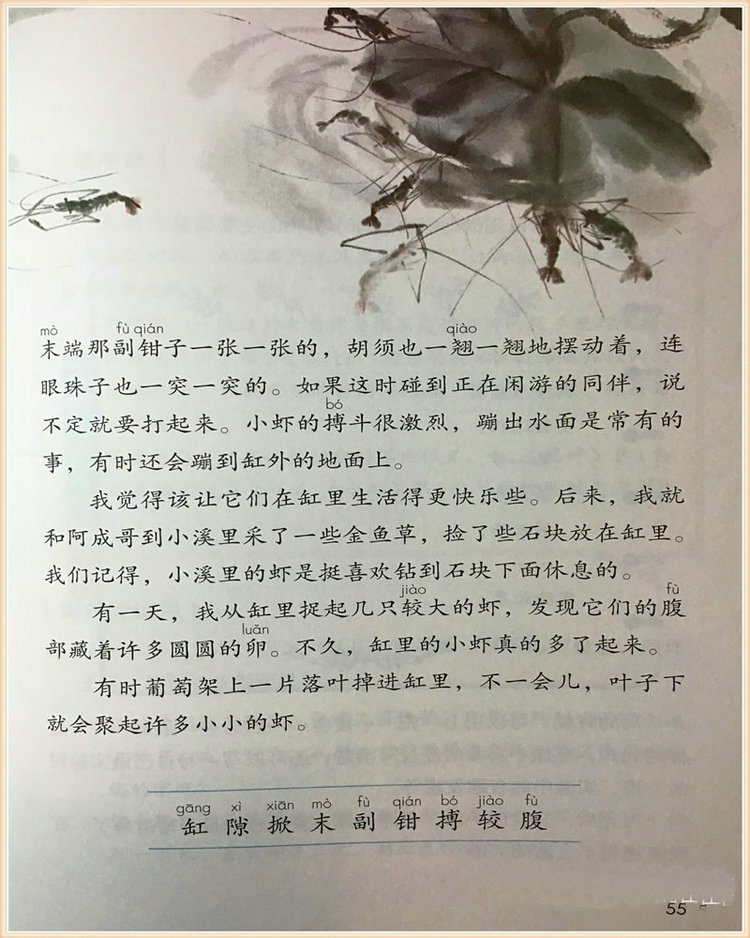 mò fù qián qiào
末端那副钳子一张一张的，胡须也一翘一翘地摆动着，连
眼珠子也一突一突的。如果这时碰到正在闲游的同伴，说
bó
不定就要打起来。小虾的搏斗很激烈，蹦出水面是常有的
事，有时还会蹦到缸外的地面上。
我觉得该让它们在缸里生活得更快乐些。后来，我就
和阿成哥到小溪里采了一些金鱼草，捡了些石块放在缸里。
我们记得，小溪里的虾是挺喜欢钻到石块下面休息的。
jiào fù
有一天，我从缸里捉起几只较大的虾，发现它们的腹
luǎn
部藏着许多圆圆的卵。不久，缸里的小虾真的多了起来。
有时葡萄架上一片落叶掉进缸里，不一会儿，叶子下
就会聚起许多小小的虾。
gāng xì xiān mò fù qián bó jiào fù
缸 隙 掀 末 副 钳 搏 较 腹
55